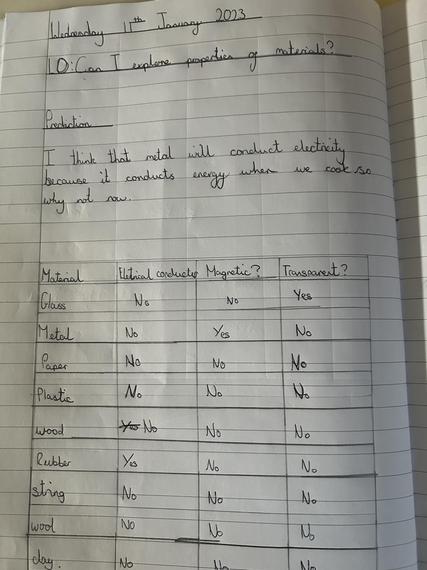 Wednesday 11th January 2023
LO: Can I explore properties of materials?
Prediction
I think that metal will conduct electricity
because it conducts energy when we cook so
why not now.
Material Eletrical conductor Magnetic? Transparent?
Glass No No Yes
Metal No Yes No
Paper No No No
Plastic No No No
wood Yes No No No
Rubber Yes No No
string No No No
wool No No No
clay. No No No